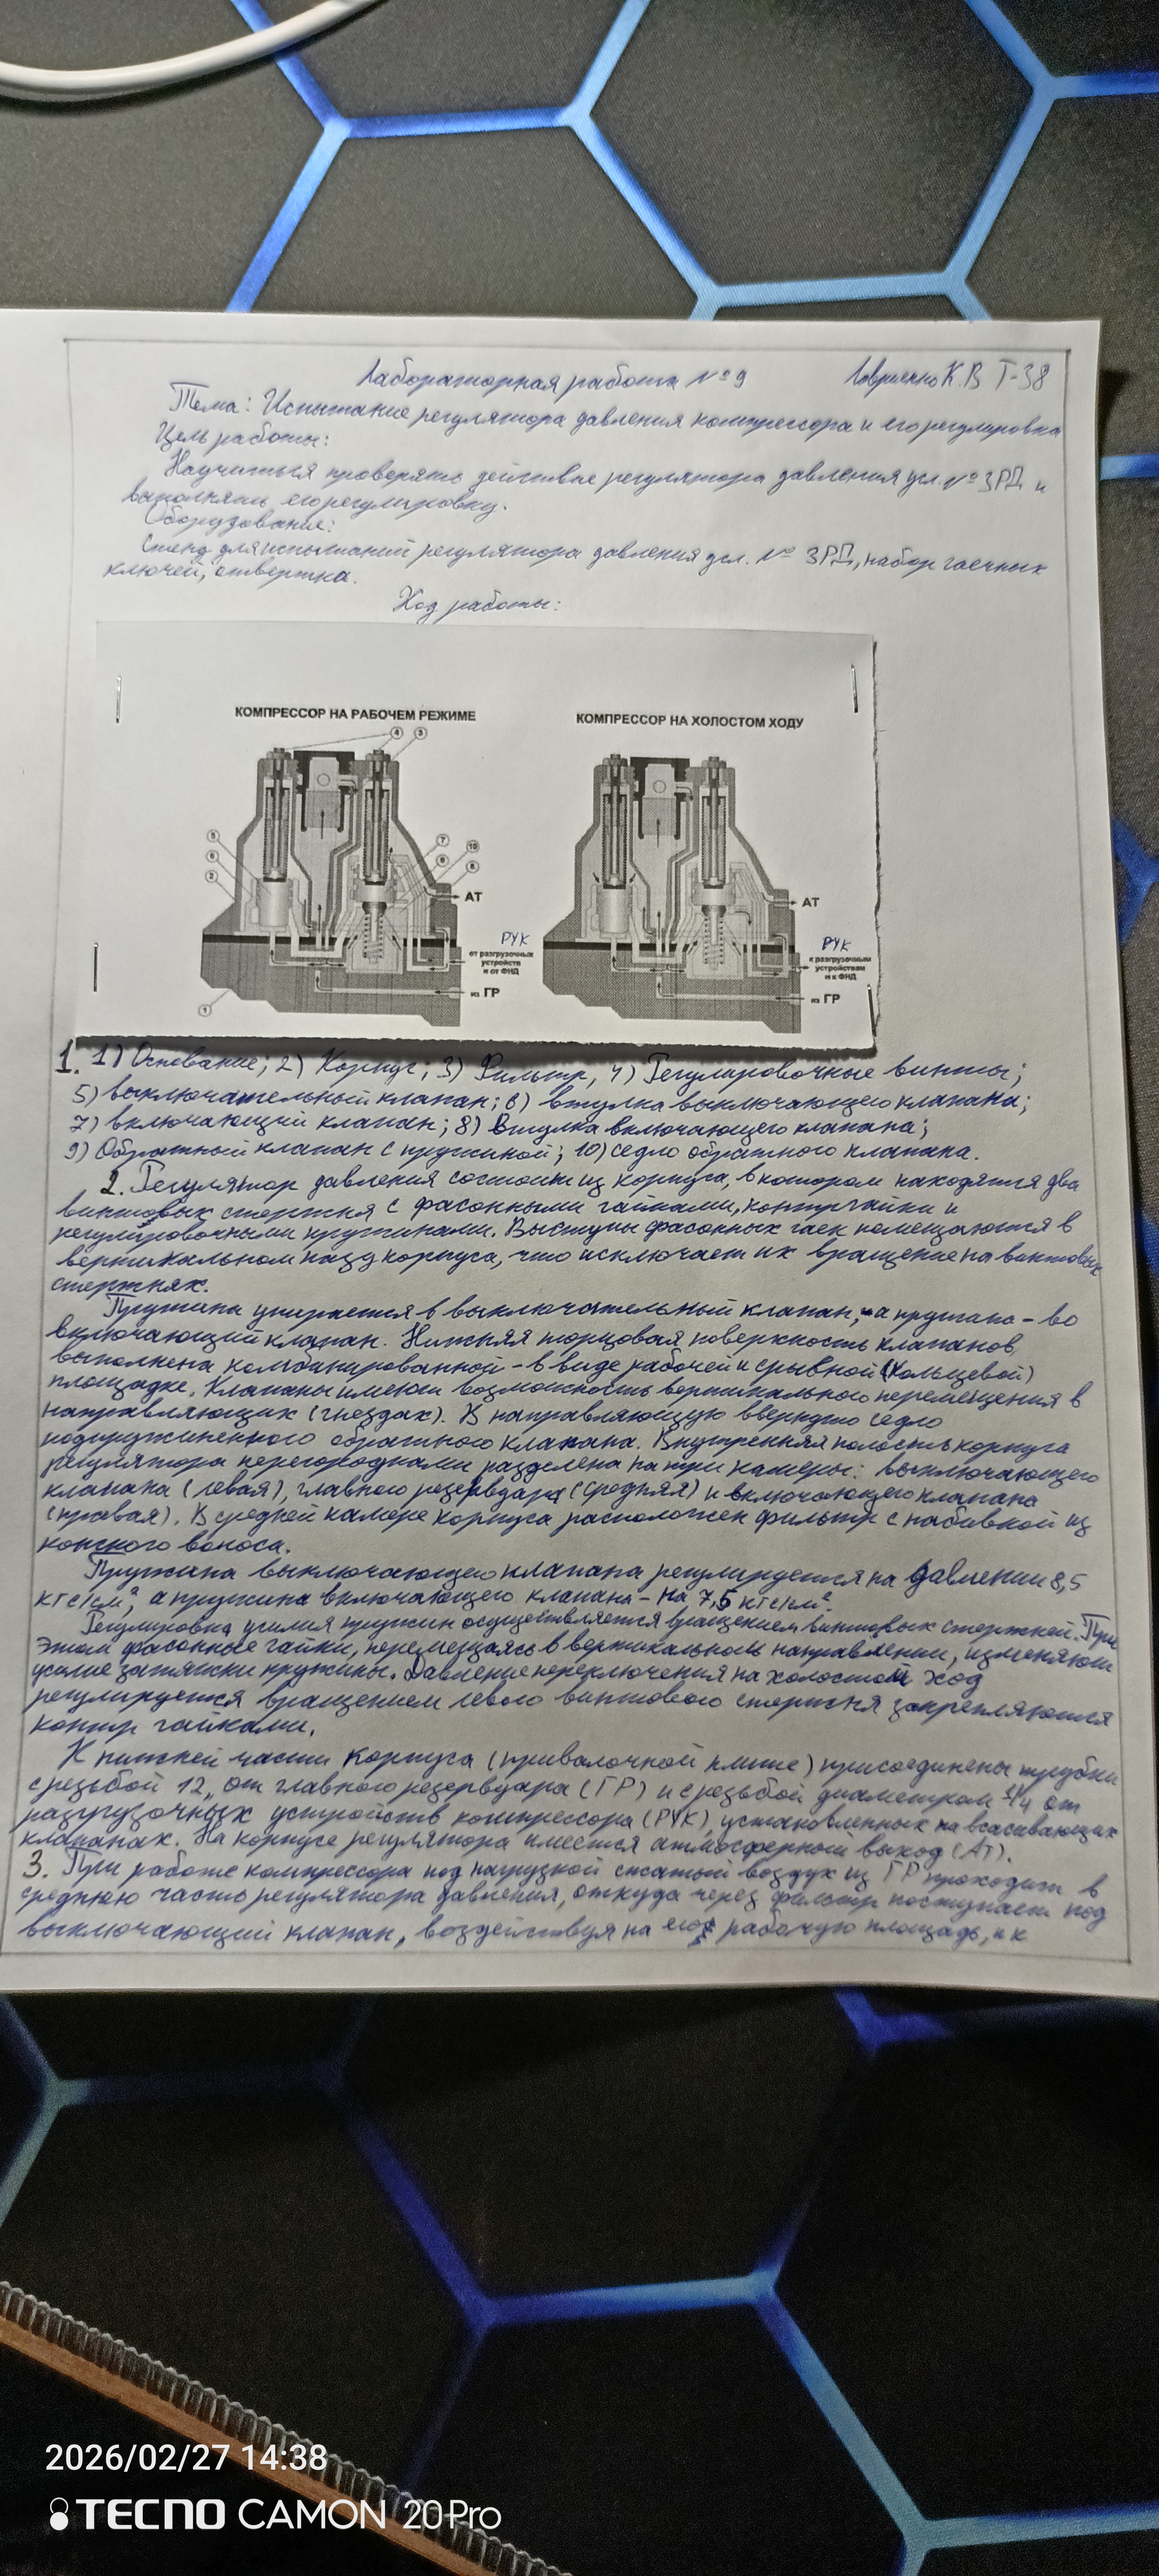 Лабораторная работа №9 К.В Т-38
Тема: Испытание регулятора давления компрессора и его регулировка
Цель работы:
Научиться проверять действие регулятора давления усл. № 3РД и
выполнять его регулировку.
Оборудование:
Стенд для испытаний регулятора давления усл. № 3РД, набор гаечных
ключей, отвертка.
Ход работы:
КОМПРЕССОР НА РАБОЧЕМ РЕЖИМЕ
4 3
5
6
2
7
10
9
8
АТ
РУК
от разгрузочных
устройств
и от ФНД
из ГР
1
КОМПРЕССОР НА ХОЛОСТОМ ХОДУ
АТ
РУК
к разгрузочным
устройствам
и к ФНД
из ГР
1. 1) Основание; 2) Корпус; 3) Фильтр, 4) Регулировочные винты;
5) выключательный клапан; 6) втулка выключающего клапана;
7) включающий клапан; 8) Втулка включающего клапана;
9) Обратный клапан с пружиной; 10) седло обратного клапана.
2. Регулятор давления состоит из корпуса, в котором находятся два
винтовых стержня с фасонными гайками, контргайки и
регулировочными пружинами. Выступы фасонных гаек помещаются в
вертикальном пазу корпуса, что исключает их вращение на винтовых
стержнях.
Пружина упирается в выключательный клапан, а пружина - во
включающий клапан. Нижняя торцовая поверхность клапанов
выполнена комбинированной - в виде рабочей и срывной (кольцевой)
площадке. Клапаны имеют возможность вертикального перемещения в
направляющих (гнездах). В направляющую ввернуто седло
подпружиненного обратного клапана. Внутренняя полость корпуса
регулятора перегородками разделена на три камеры: выключающего
клапана (левая), главного резервуара (средняя) и включающего клапана
(правая). В средней камере корпуса расположен фильтр с набивкой из
конского волоса.
Пружина выключающего клапана регулируется на давлении 8,5
кгс/см², а пружина включающего клапана - на 7,5 кгс/см².
Регулировка усилия пружин осуществляется вращением винтовых стержней. При
этом фасонные гайки, перемещаясь в вертикальном направлении, изменяют
усилие затяжки пружины. Давление переключения на холостой ход
регулируется вращением левого винтового стержня закрепляются
контр гайками.
К нижней части корпуса (привалочной плите) присоединены трубки
с резьбой 12, от главного резервуара (ГР) и с резьбой диаметром 1/4 от
разгузочных устройств компрессора (РУК), установленных на всасывающих
клапанах. На корпусе регулятора имеется атмосферный выход (АТ).
3. При работе компрессора под нагрузкой сжатый воздух из ГР проходит в
среднюю часть регулятора давления, откуда через фильтр поступает под
выключающий клапан, воздействуя на его рабочую площадь, и к
2026/02/27 14:38
TECNO CAMON 20 Pro